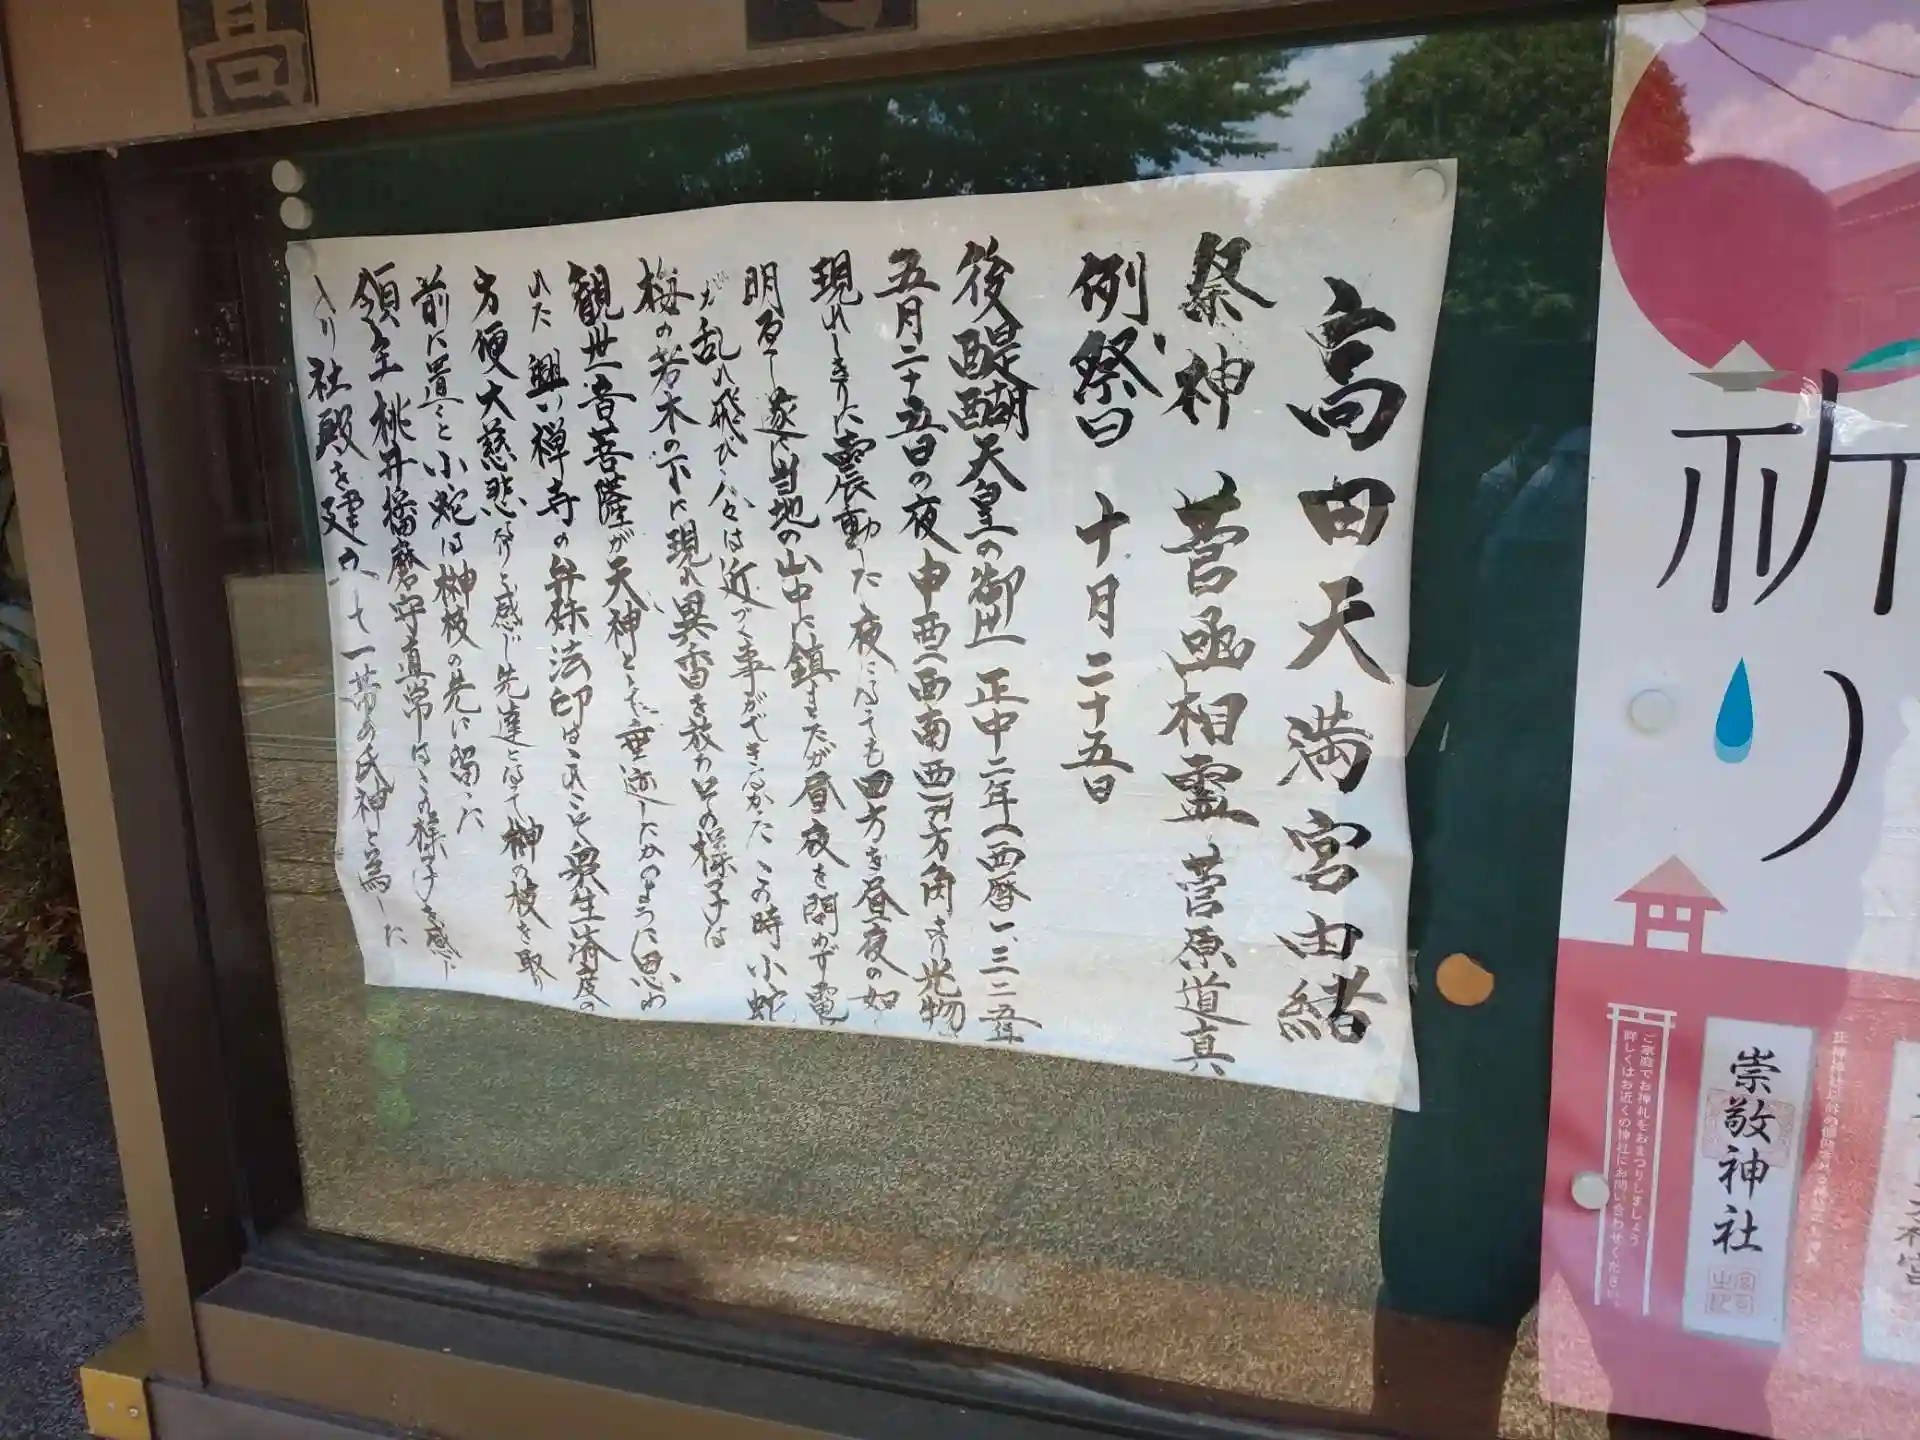 高田天満宮由緒
祭神 菅丞相霊 菅原道真
例祭日 十月二十五日
後醍醐天皇の御世 正中二年(西暦一、三二五年
五月二十五日の夜 申酉(西南西)方角より光物
現れしきりに震動した 夜になっても四方を昼夜の如
明るし 遂に当地の山中に鎮まったが昼夜を問わず電
が乱れ飛び人々は近づく事ができなかった この時小蛇
梅の若木の下に現れ異香を放ち その様子は
観世音菩薩が天神として垂迹したかのように思わ
れた 興禅寺の弁弥法印はこれこそ衆生済度の
方便大慈悲なりと感じ先達となって榊の枝を取り
前に置くと小蛇は榊枝の先に留った
領主桃井播磨守直常はこの様子を感じ
入り社殿を建立して一帯の氏神と為した
祈り
崇敬神社
ご家庭でお神札をおまつりしましょう
詳しくはお近くの神社にお問い合わせください。